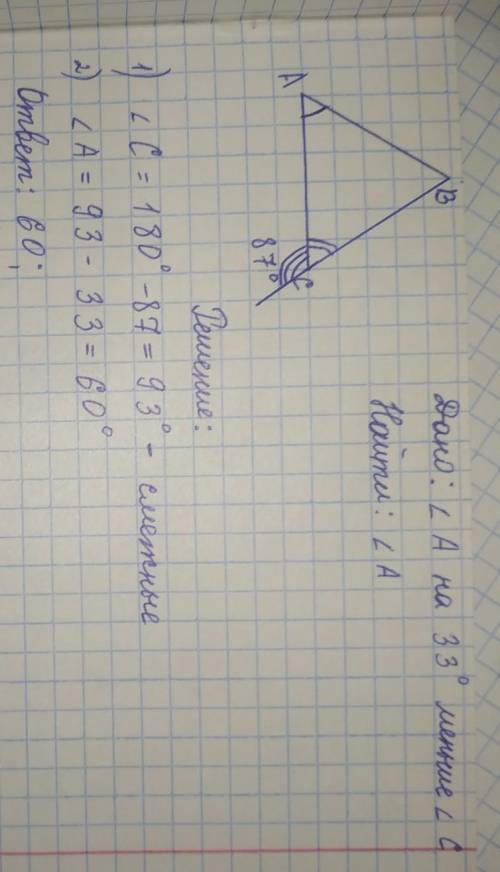 Дано: ∠A на 33° меньше ∠C
Найти: ∠A
B
A
C
87°
Решение:
1) ∠C = 180° - 87 = 93° - смежные
2) ∠A = 93 - 33 = 60°
Ответ: 60;